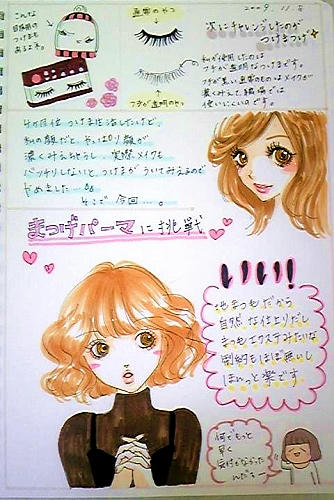 2009.11.8
こんな
目薬用の
つけまも
あるよね。
通常のやつ
フチが透明のやつ
次にチャレンジしたのが
つけまつげ
私が使用したのは
フチが透明なつけまです。
フチが黒い通常のものはメイクが
濃くみえて、職場では
使いにくいのです。
4ヶ月位つけま生活していたけど
私の顔だと、やっぱり顔が
濃くみえちゃうし、実際メイクも
バッチリしないと、つけまがういてみえるので
やめました…。
そこで今回…。
まつげパーマに挑戦
いい!!
地まつ毛だから
自然な仕上りだし
まつ毛エクステみたいな
制約もほぼ無いし
ほんっと楽です
何でもっと
早く
気付かなかった
んだろ